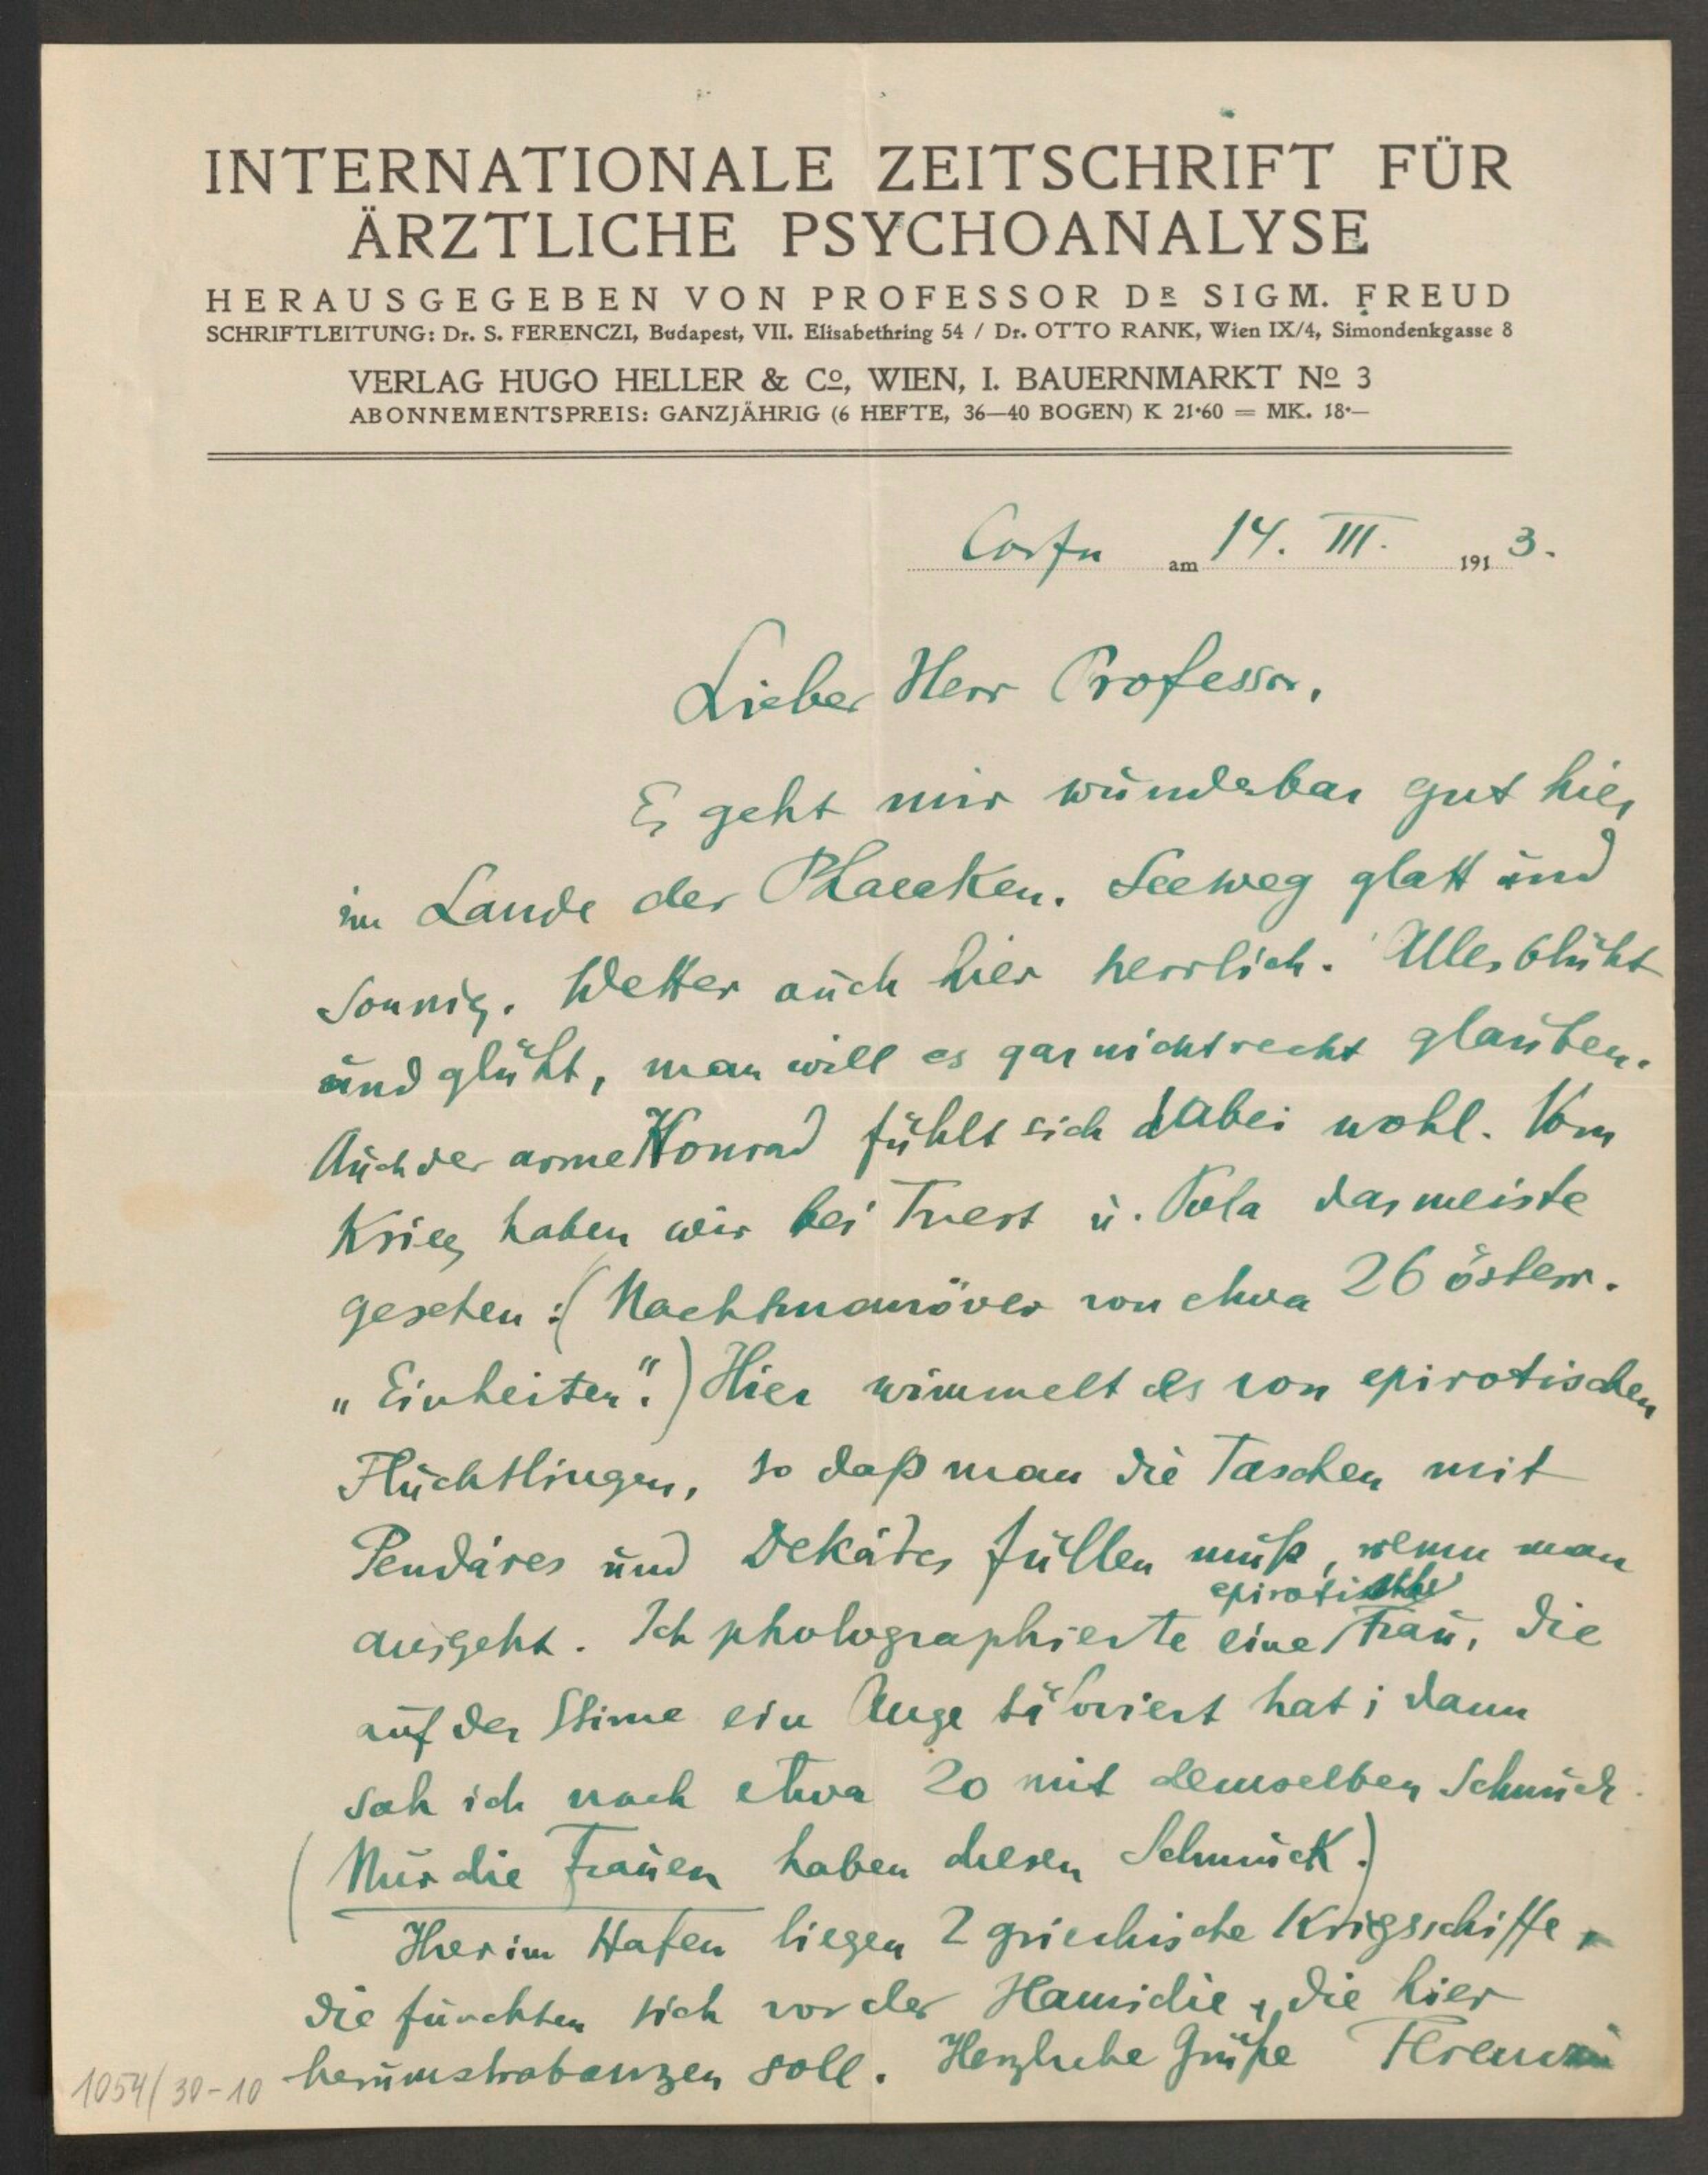 INTERNATIONALE ZEITSCHRIFT FÜR
ÄRZTLICHE PSYCHOANALYSE
HERAUSGEGEBEN VON PROFESSOR DR SIGM. FREUD
SCHRIFTLEITUNG: Dr. S. FERENCZI, Budapest, VII. Elisabethring 54 / Dr. OTTO RANK, Wien IX/4, Simondenkgasse 8
VERLAG HUGO HELLER & Co, WIEN, I. BAUERNMARKT No 3
ABONNEMENTSPREIS: GANZJÄHRIG (6 HEFTE, 36—40 BOGEN) K 21·60 = MK. 18·—
Corfu am 14. III. 1913.
Lieber Herr Professor,
Es geht mir wunderbar gut hier
im Lande der Phaeaken. Seeweg glatt und
sonnig. Wetter auch hier herrlich. Alles blüht
und glüht, man will es gar nicht recht glauben.
Auch der arme Konrad fühlt sich dabei wohl. Vom
Krieg haben wir bei Triest u. Pola das meiste
gesehen: (Nachtmanöver von etwa 26 österr.
„Einheiten“.) Hier wimmelt es von epirotischen
Flüchtlingen, so daß man die Taschen mit
Pendáres und Dekádes füllen muß, wenn man
ausgeht. Ich photographierte eine epirotische Frau, die
auf der Stirne ein Auge tätoviert hat; dann
sah ich noch etwa 20 mit demselben Schmuck.
(Nur die Frauen haben diesen Schmuck.)
Hier im Hafen liegen 2 griechische Krigsschiffe,
die fürchten sich vor der Hamidie, die hier
herumstrabanzen soll. Herzliche Grüße Ferenczi
1054/30-10